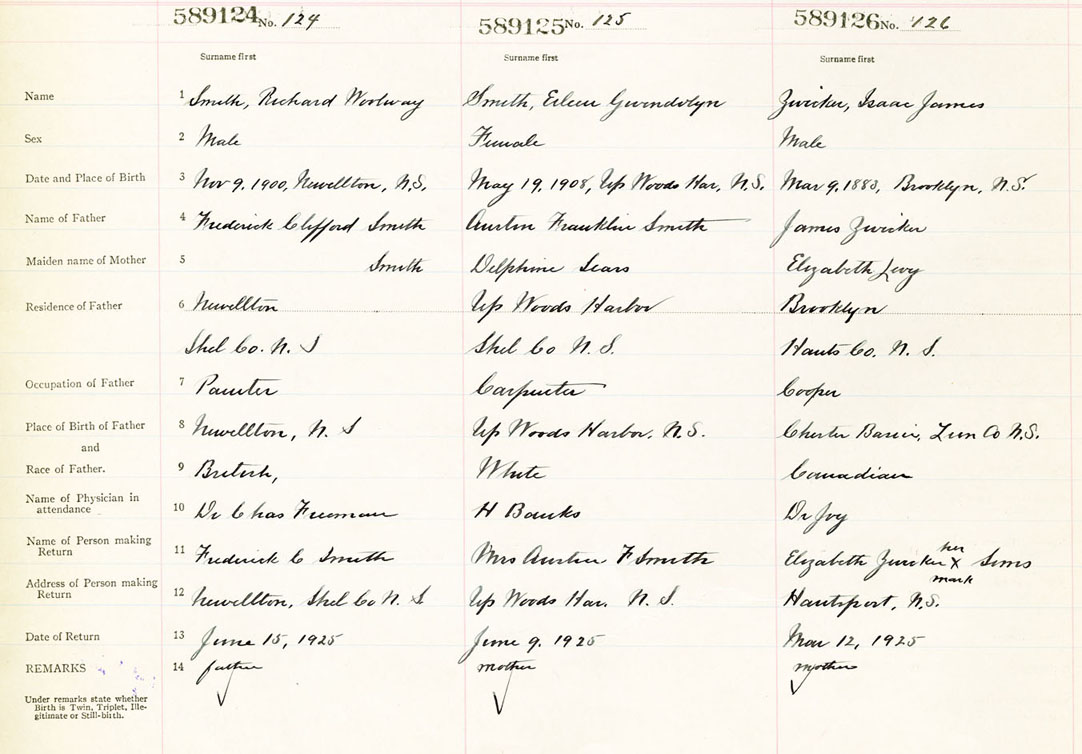 589124 No. 124 589125 No. 125 589126 No. 126
Surname first Surname first Surname first
Name 1 Smith, Richard Woolway Smith, Eileen Gwendolyn Zwicker, Isaac James
Sex 2 Male Female Male
Date and Place of Birth 3 Nov 9, 1900, Newellton, N.S. May 19, 1908, Up Woods Har, N.S. Mar 9, 1883, Brooklyn, N.S.
Name of Father 4 Frederick Clifford Smith Austin Franklin Smith James Zwicker
Maiden name of Mother 5 Smith Delphine Sears Elizabeth Levy
Residence of Father 6 Newellton Up Woods Harbor Brooklyn
Shel Co. N. S Shel Co N. S. Hants Co. N. S.
Occupation of Father 7 Painter Carpenter Cooper
Place of Birth of Father 8 Newellton, N. S Up Woods Harbor, N.S. Chester Basin, Lun Co N.S.
and
Race of Father. 9 British, White Canadian
Name of Physician in
attendance 10 Dr Chas Freeman H Banks Dr Joy
Name of Person making
Return 11 Frederick C Smith Mrs Austin F Smith Elizabeth Zwicker her X mark Sims
Address of Person making
Return 12 Newellton, Shel Co N. S Up Woods Har. N. S. Hantsport, N.S.
Date of Return 13 June 15, 1925 June 9, 1925 Mar 12, 1925
REMARKS 14 father mother mother
Under remarks state whether
Birth is Twin, Triplet, Ille-
gitimate or Still-birth.